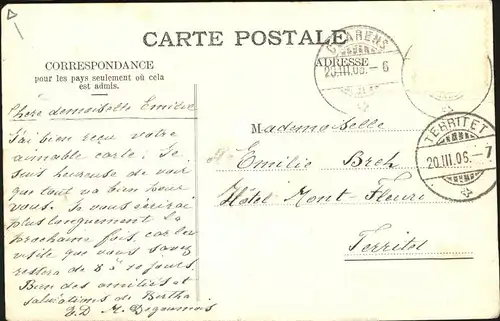 CARTE POSTALE
CORRESPONDANCE
pour les pays seulement où cela
est admis.
ADRESSE
CLARENS
20.III.06.-6
TERRITET
20.III.06.-7
Chère demoiselle Emilie
J'ai bien reçu votre
aimable carte; Je
suis heureuse de voir
que tout va bien pour
vous. Je vous écrirai
plus longuement la
prochaine fois, car la
visite que vous savez
restera de 8 à 10 jours.
Bien des amitiés et
salutations de Bertha
M.
Mademoiselle
Emilie Breh
Hôtel Mont-Fleuri
Territet